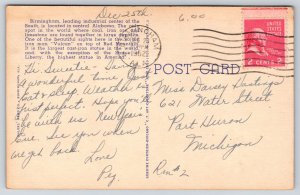 Dec 25th
6.00
Birmingham, leading industrial center of the
South, is located in central Alabama. The only
spot in the world where coal, iron ore and
limestone are found together in large deposits.
One of the beautiful sights here is the
iron man "Vulcan" on top of Red Mountain.
It is the largest cast-iron statue in the
world and, with the exception of the Statue of
Liberty, the highest statue in America.
POST CARD
2 CENTS 2
Hi Sweetie - Having
a wonderful time
Eats sleep. Weather is
just perfect. Hope you'll
be with us New Years
Eve. See you when
we get back. Love
Peg.
Miss Daisy Hastings
621 Water Street
Port Huron
Michigan
Rm #2